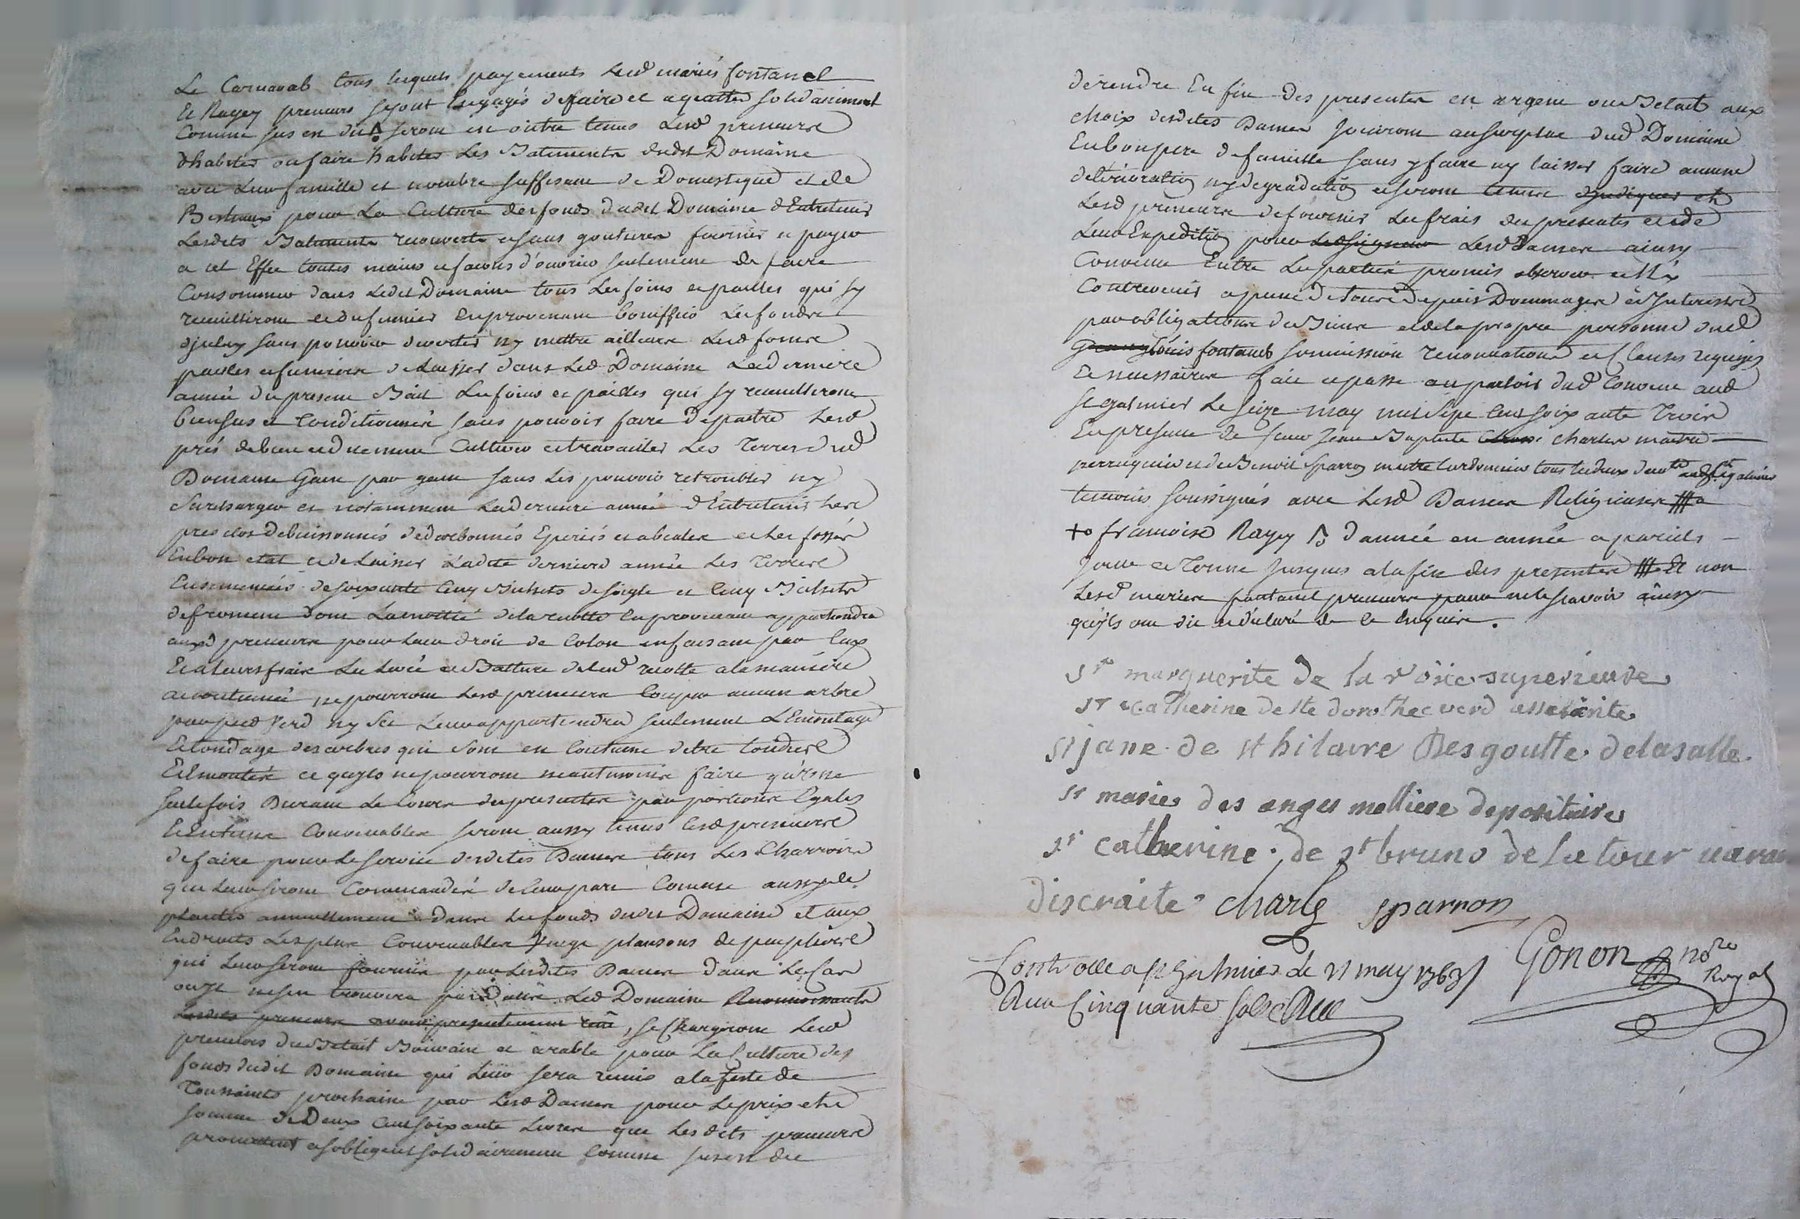 Le Carnaval tous lesquels payements lesd mariés fontanel
Et Rayey preneurs seront engagés de faire et aquitter solidairement
Comme sus en dit seront en outre tenus lesd preneurs
d'habiter ou faire habiter les Batiments dudit Domaine
avec leur famille et nombre suffisant de Domestique et de
Bestiaux pour La Culture des fonds dudit Domaine d'Entretenir
Lesdits Batiments recouverts et sans goutieres fournir et payer
a cet Effet toutes mains et facons d'ouvriers seulement de faire
Consommer dans ledit Domaine tous Les foins et pailles qui sy
recuilliront et du fumier en provenant boniffier les fonds
d'jceluy sans pouvoir divertir ny mettre ailleurs lesd foins
pailles et fumiers de laisser dans led Domaine La derniere
année du present Bail les foins et pailles qui sy recuilliront
bien sus et Conditionnés sans pouvoir faire depaitre lesd
prés de bien et duement Cultiver et travailler Les Terres dud
Domaine Gain par gain sans les pouvoir retroubler ny
surcharger et notamment La derniere année d'Entretenir les
prés clos de buissonnés et les fossés
En bon etat et de laisser Ladite derniere année Les Terres
Ensemencées de soixante Cinq Bichets de seigle et Cinq Bichets
de froment dont La moitié de la recolte en provenant appartiendra
auxd preneurs pour leur droit de Colon en faisant par Eux
Et a leurs frais La levée et Batture de lad recolte a la maniére
accoutumée ne pourront lesd preneurs Couper aucun arbre
par pied verd ny sec leur appartiendra seulement L'Emontage
Et tondage des arbres qui sont en Coutume d'etre tondus
Et Emontés ce quyls ne pourront neantmoins faire qu'une
seule fois Durant le Cours des presentes par portions Egales
Et En tems Convenables seront aussy tenus lesd preneurs
de faire pour le service desdites Dames tous Les Charrois
qui leur seront Commandés de leur part Comme aussy de
planter annuellement dans les fonds dudit Domaine et aux
Endroits Les plus Convenables vingt plansons de peuplieres
qui leur seront fournis par lesdites Dames dans Le Cas
ou jl ne sen trouvera pas dans Led Domaine Reconnoissants
Lesdits preneurs avoir presentement reçu, se Chargeront lesd
preneurs du Betail Bouvain et arable pour La Culture des
fonds dudit Domaine qui Leur sera remis a la feste de
Toussaints prochaine par lesd Dames pour le prix et
somme de Deux Cent soixante Livres que Lesdits preneurs
promettent et sobligent solidairement Comme sus est dit
de rendre En fin des presentes en argent ou Betail aux
choix desdites Dames jouiront au surplus dud Domaine
En bon pere de famille sans y faire ny laisser faire aucune
deterioration ny degradation et seront tenus
Lesd preneurs de fournir Les frais des presentes et de
Leur Expedition pour Lesd Dames ainsy
Convenu Entre Les parties promis observer et ny
Contrevenir a peine de tous depens Dommages et Interests
par obligations de Biens et de la propre personne dud
Louis fontanel soumissions renonciations et Clauses requises
Et necessaires fait et passé au parloir dud Couvent aud
st galmier Le seize may mil sept Cent soixante Trois
En presence de sieur Jean Baptiste Charles maitre
perruquier et de Benoit sparron maitre Cordonnier tous les deux dem.ts aud st galmier
temoins soussignés avec Lesd Dames Religieuses
+o francoise Rayey d'année en année a pareils
jour et Terme jusques a la fin des presentes Et non
Lesd mariés fontanel preneurs pour ne le scavoir ainsy
quyls ont dit et declaré de ce Enquis.
sr marguerite de la v oix superieure
sr catherine de ste dorothee verd assistante
sr jane de st hilaire Desgoutte delasalle
sr marie des anges molliere depositaire
sr catherine de st bruno de la tour varan
discraite Charle sparron
Gonon no.re
Royal
Controllé a st Galmier le 21 may 1763
Recu Cinquante sols